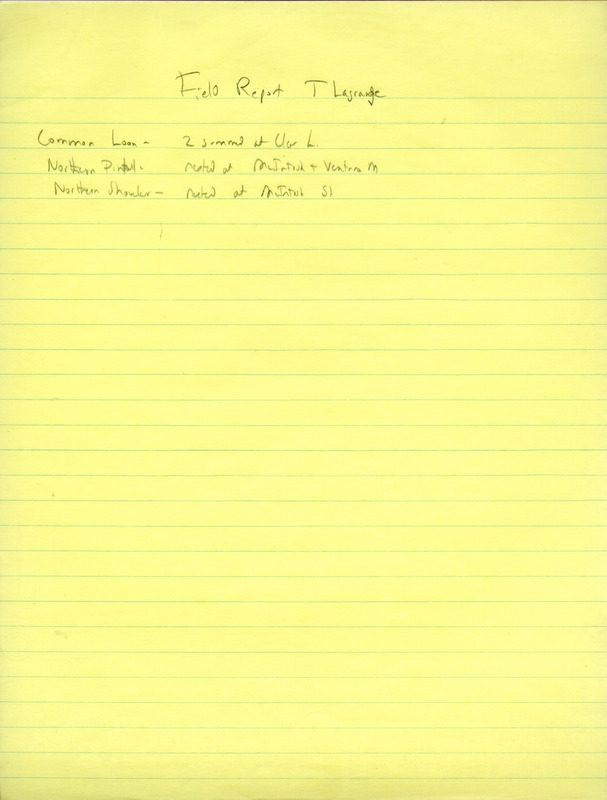 Field Report T Lagrange
Common Loon - 2 summered at Clear L.
Northern Pintail - nested at McIntosh + Ventura M
Northern Shoveler - nested at McIntosh Sl